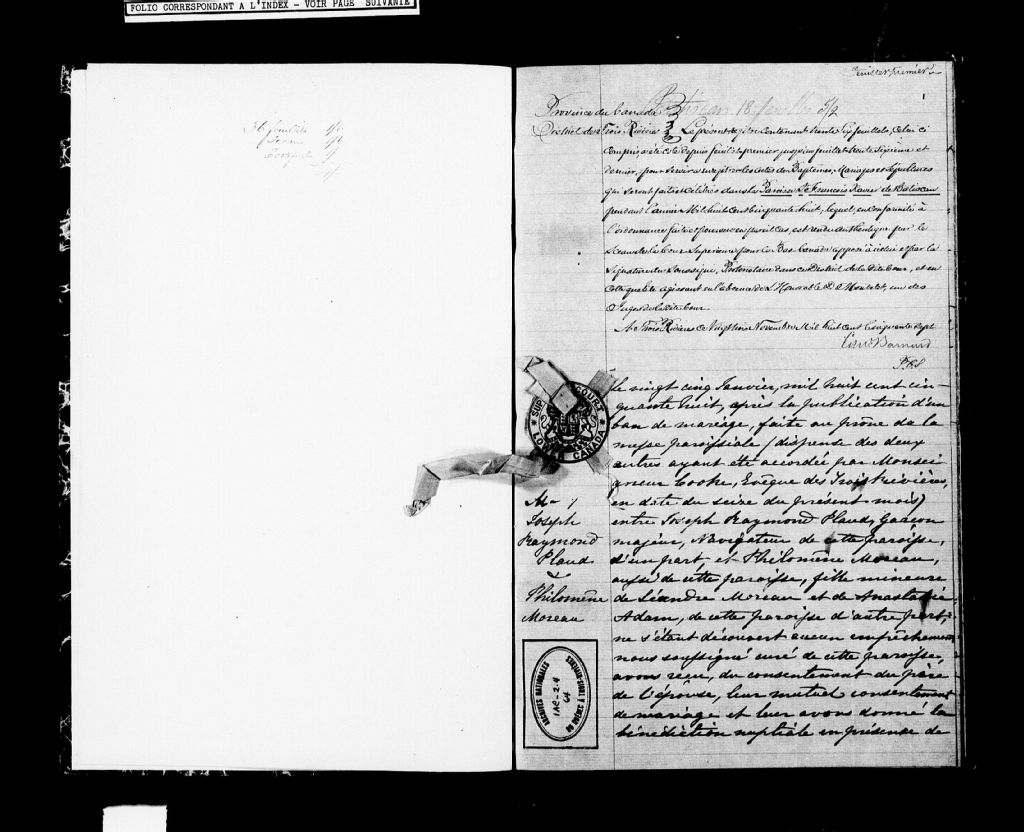 FOLIO CORRESPONDANT A L'INDEX - VOIR PAGE SUIVANTE
feuillet premier
36 feuillets
Province du Canada
Batiscan 18 feuillets 5/2
District des Trois Rivières Le présent registre contenant trente six feuillets, celui ci
compris a été coté depuis feuillet premier jusqu'au feuillet trente sixième et
dernier, pour servir à enregistrer les actes de Baptêmes, Mariages et Sépultures
qui seront faits et célébrés dans la Paroisse St François Xavier de Batiscan
pendant l'année Mil huit cent cinquante huit, lequel, en conformité à
l'ordonnance faite et pourvue en pareil cas, est rendu authentique par le
Sceau de la Cour Supérieure pour le Bas Canada apposé à icelui et par la
signature du soussigné, Protonotaire dans ce District de la dite Cour, et en
cette qualité agissant en l'absence de L'Honorable D. Mondelet, un des
Juges de la dite Cour
Aux Trois Rivières ce Vingt Novembre Mil huit cent cinquante sept
Edw Barnard
P.C.S
SUP COURT
LOWER CANADA
M-1
Joseph
Raymond
Plaud
&
Philomène
Moreau
le vingt cinq Janvier, mil huit cent cin-
quante huit, après la publication d'un
ban de mariage, faite au prône de la
messe paroissiale (dispense des deux
autres ayant été accordée par Monsei-
gneur Cooke, Evêque des Trois Rivières,
en date du seize du présent mois)
entre Joseph Raymond Plaud, Garçon
majeur, Navigateur de cette paroisse,
d'un part, et Philomène Moreau,
aussi de cette paroisse, fille mineure
de Léandre Moreau et de Anastasie
Adam, de cette paroisse d'autre part,
ne s'étant découvert aucun empêchement
nous soussigné curé de cette paroisse,
avons reçu, du consentement du père
de l'épouse, leur mutuel consentement
de mariage et leur avons donné la
bénédiction nuptiale en présence de
ARCHIVES NATIONALES
DU QUÉBEC À TROIS-RIVIÈRES